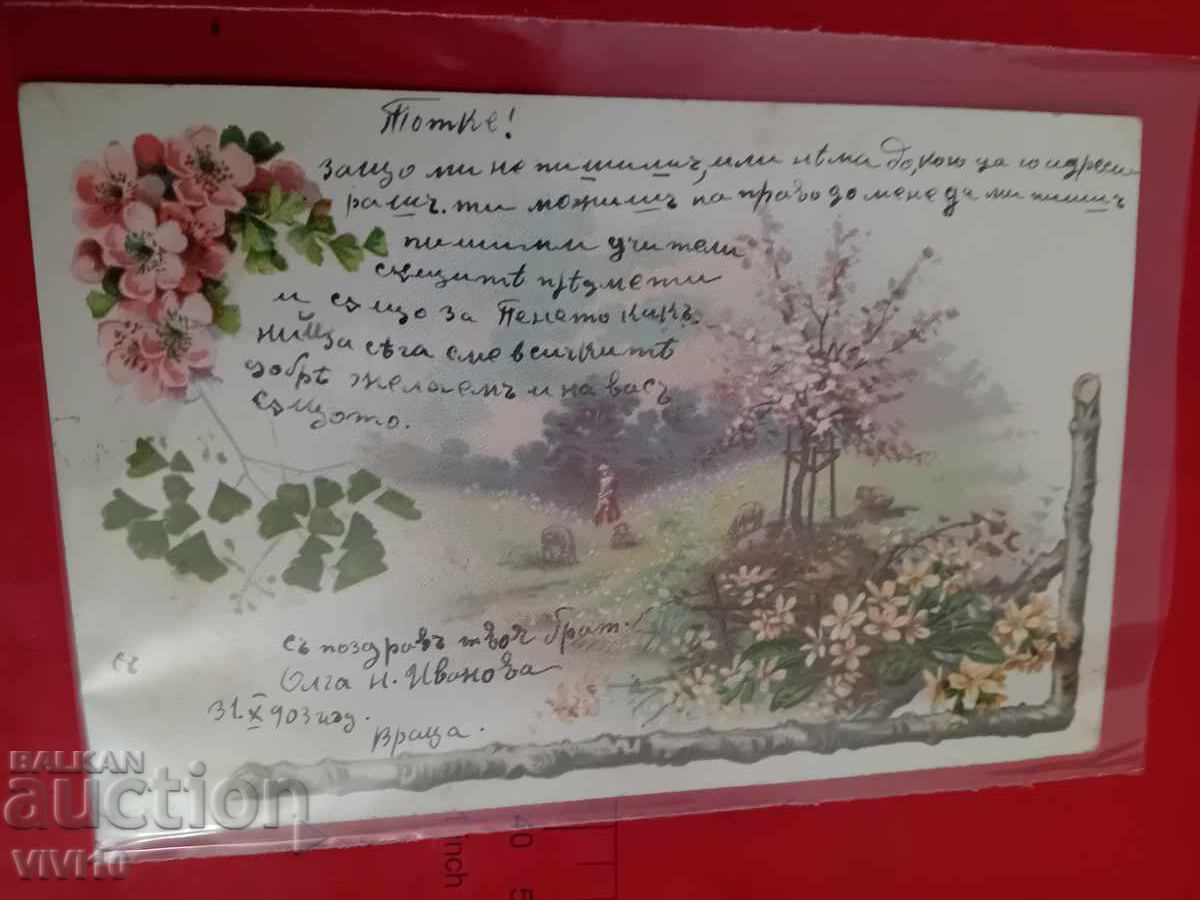 Тотке!
защо ми не пишишъ, или нѣма до кого да го адреси-
рашъ. ти можишъ на право до мене да ми пишишъ
пишими учители
същитѣ прѣдмети
и също за Пенето какъ.
ний за сѣга сме всичкитѣ
добрѣ желаемъ и на васъ
същото.
съ поздравъ твоя
Олга Н. Иванова
31.X 903 год.
Враца.
съ
BALKAN
auction
VIVI10
40
5
1 inch